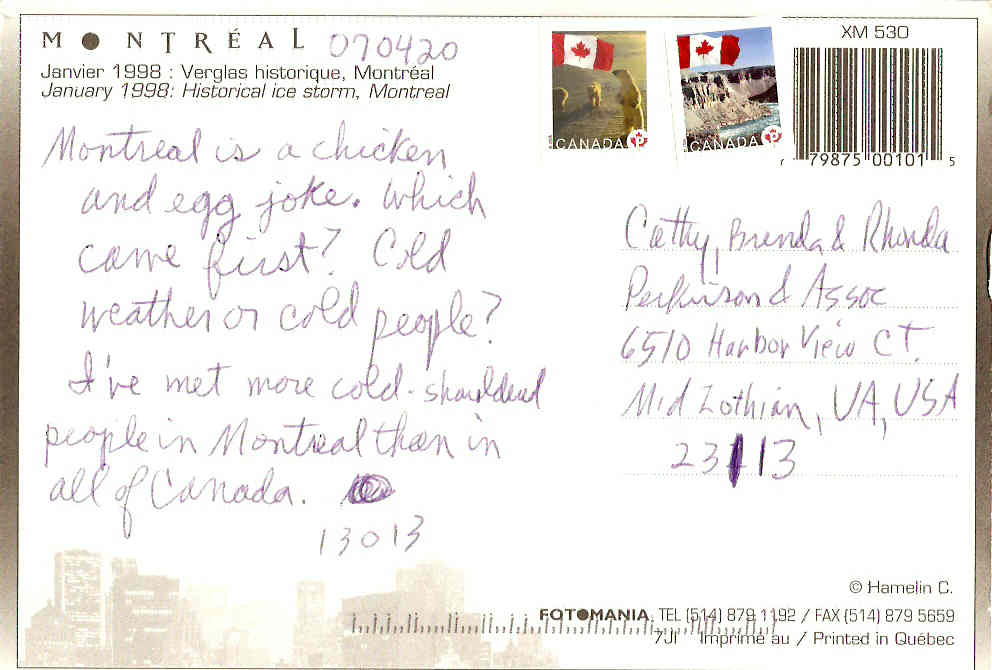 MONTRÉAL 070420
Janvier 1998 : Verglas historique, Montréal
January 1998: Historical ice storm, Montreal
Montreal is a chicken
and egg joke. Which
came first? Cold
weather or cold people?
I've met more cold-shouldered
people in Montreal than in
all of Canada.
13013
CANADA P
CANADA P
XM 530
79875 00101 5
Cathy, Brenda & Rhonda
Perkinson & Assoc
6510 Harbor View CT.
Mid Lothian, VA, USA
23113
© Hamelin C.
FOTOMANIA TEL (514) 879 1192 / FAX (514) 879 5659
7JI Imprimé au / Printed in Québec